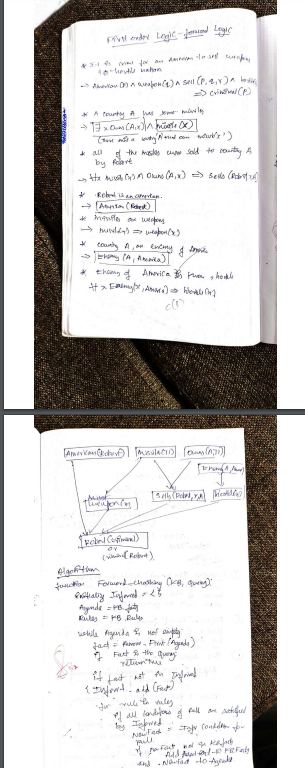 First order Logic - forward Logic
* It is crime for an American to sell weapons
to hostile nation
→ American (P) ∧ weapon (q) ∧ sell (P, q, r) ∧ hostile
⇒ Criminal (P)
* A country A has some missiles
→ ∃x Owns (A, x) ∧ missile (x)
* all of the missiles were sold to country A
by Robert
→ ∀x missile (x) ∧ Owns (A, x) ⇒ sells (Robert, x, A)
* Robert is an american.
→ American (Robert)
* missiles are weapons
→ missile (x) ⇒ weapon (x)
* country A, an enemy of America
→ Enemy (A, America)
* Enemy of America is known hostile
∀x Enemy (x, America) ⇒ Hostile (x)
American (Robert)
Missile (T1)
Owns (A, T1)
Enemy (A, Amer)
Weapon
Sells (Robert, T1, A)
Hostile
Robert (criminal)
or
criminal (Robert)
Algorithm
function Forward-chaining (KB, query):
initially Inferred = { }
Agenda = KB.facts
Rules = KB.Rules
while Agenda is not empty
fact = Remove-First (Agenda)
if Fact is the query
return true
if fact not in Inferred
Inferred.add (Fact)
for rule in rules
if all conditions of rule are satisfied
by Inferred
NewFact =
rule
if newFact not in KB.facts
Add NewFact to KB.Facts
and NewFact to Agenda